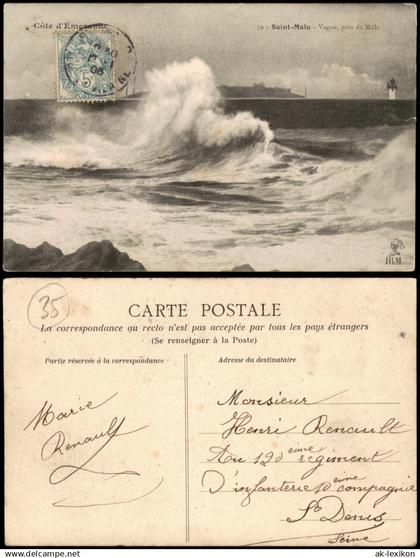 Côte d'Émeraude
10 - Saint-Malo - Vague, près du Môle
5
HLM
35
CARTE POSTALE
La correspondance au recto n'est pas acceptée par tous les pays étrangers
(Se renseigner à la Poste)
Partie réservée à la correspondance
Adresse du destinataire
Marie
Renault
Monsieur
Henri Renault
Au 120 eme regiment
D'infanterie 10 eme compagnie
St Denis
Seine
ak-lexikon.de